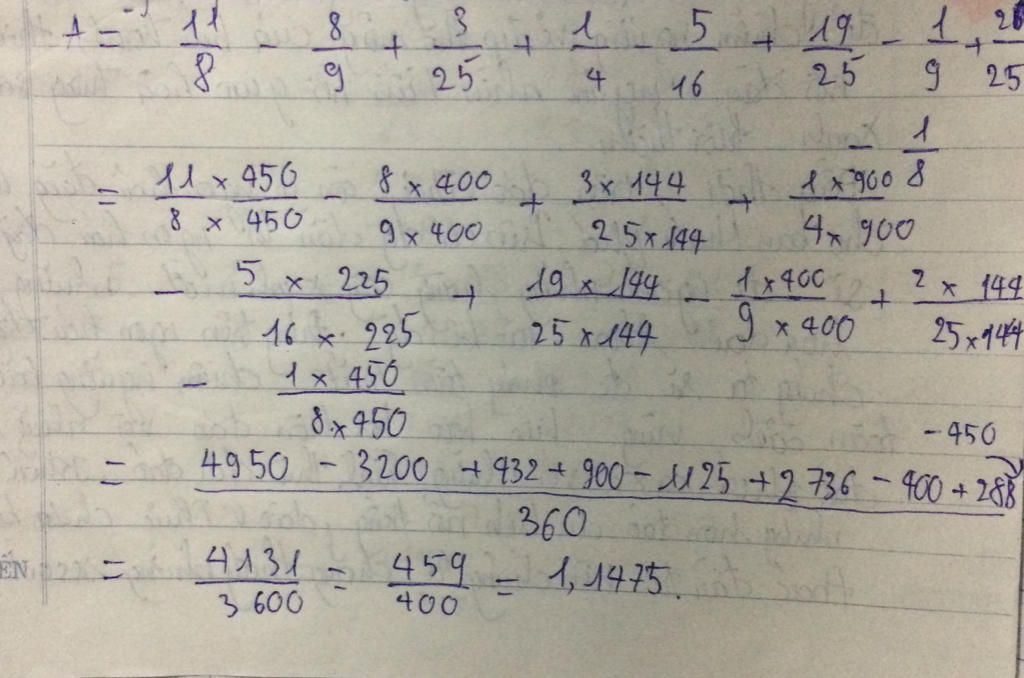 A = 11/8 - 8/9 + 3/25 + 1/4 - 5/16 + 19/25 - 1/9 + 2/25
- 1/8
= 11 x 450 / 8 x 450 - 8 x 400 / 9 x 400 + 3 x 144 / 25 x 144 + 1 x 900 / 4 x 900
- 5 x 225 / 16 x 225 + 19 x 144 / 25 x 144 - 1 x 400 / 9 x 400 + 2 x 144 / 25 x 144
- 1 x 450 / 8 x 450
- 450
= 4950 - 3200 + 432 + 900 - 1125 + 2736 - 400 + 288 / 360
ẾN = 4131 / 3600 = 459 / 400 = 1,1475.